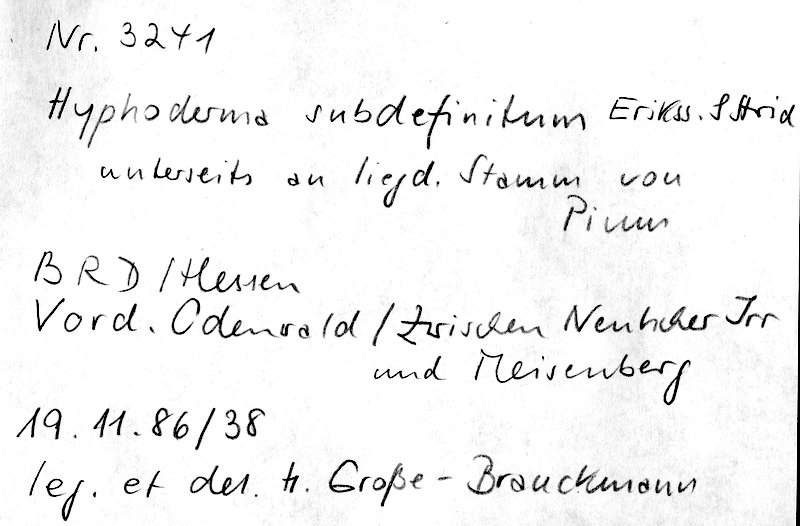 Nr. 3241
Hyphoderma subdefinitum Erikss. & Strid
unterseits an liegd. Stamm von
Pinus
BRD/Hessen
Vord. Odenwald/Zwischen Neutscher Irr
und Meisenberg
19.11.86/38
leg. et det. H. Große-Brauckmann